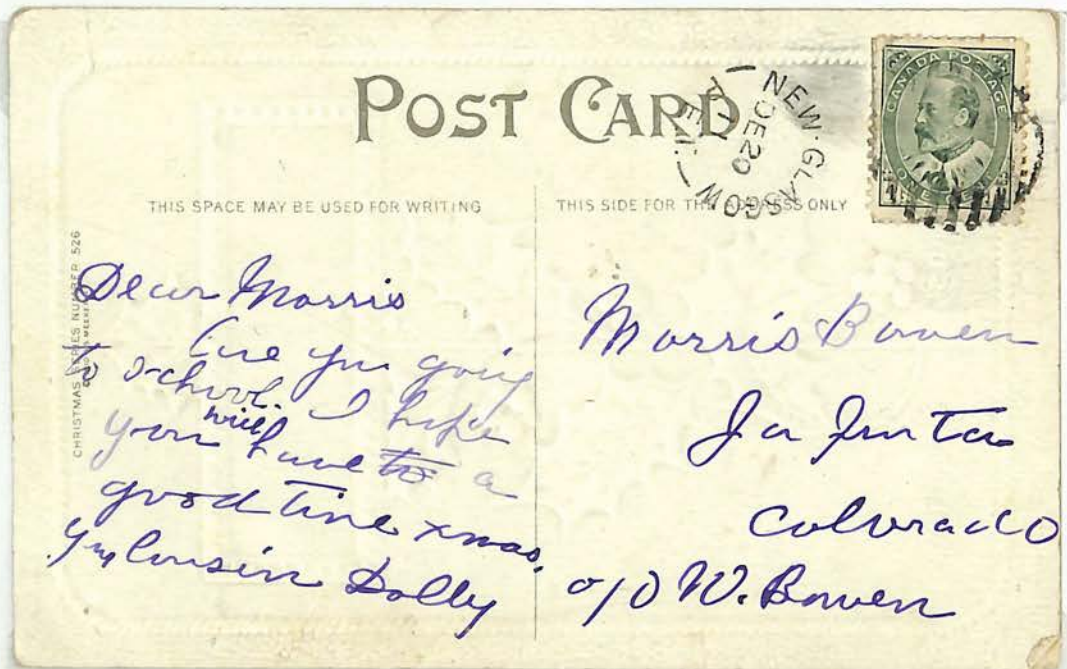 POST CARD
NEW·GLASGOW
DE 20
P.E.I.
CANADA POSTAGE
ONE
THIS SPACE MAY BE USED FOR WRITING
THIS SIDE FOR THE ADDRESS ONLY
CHRISTMAS SERIES NUMBER 526
Dear Morris
Are you going
to school. I hope
you will have to a
good time xmas.
Cousin Dolly
Morris Bowen
La Junta
Colorado
c/o W. Bowen